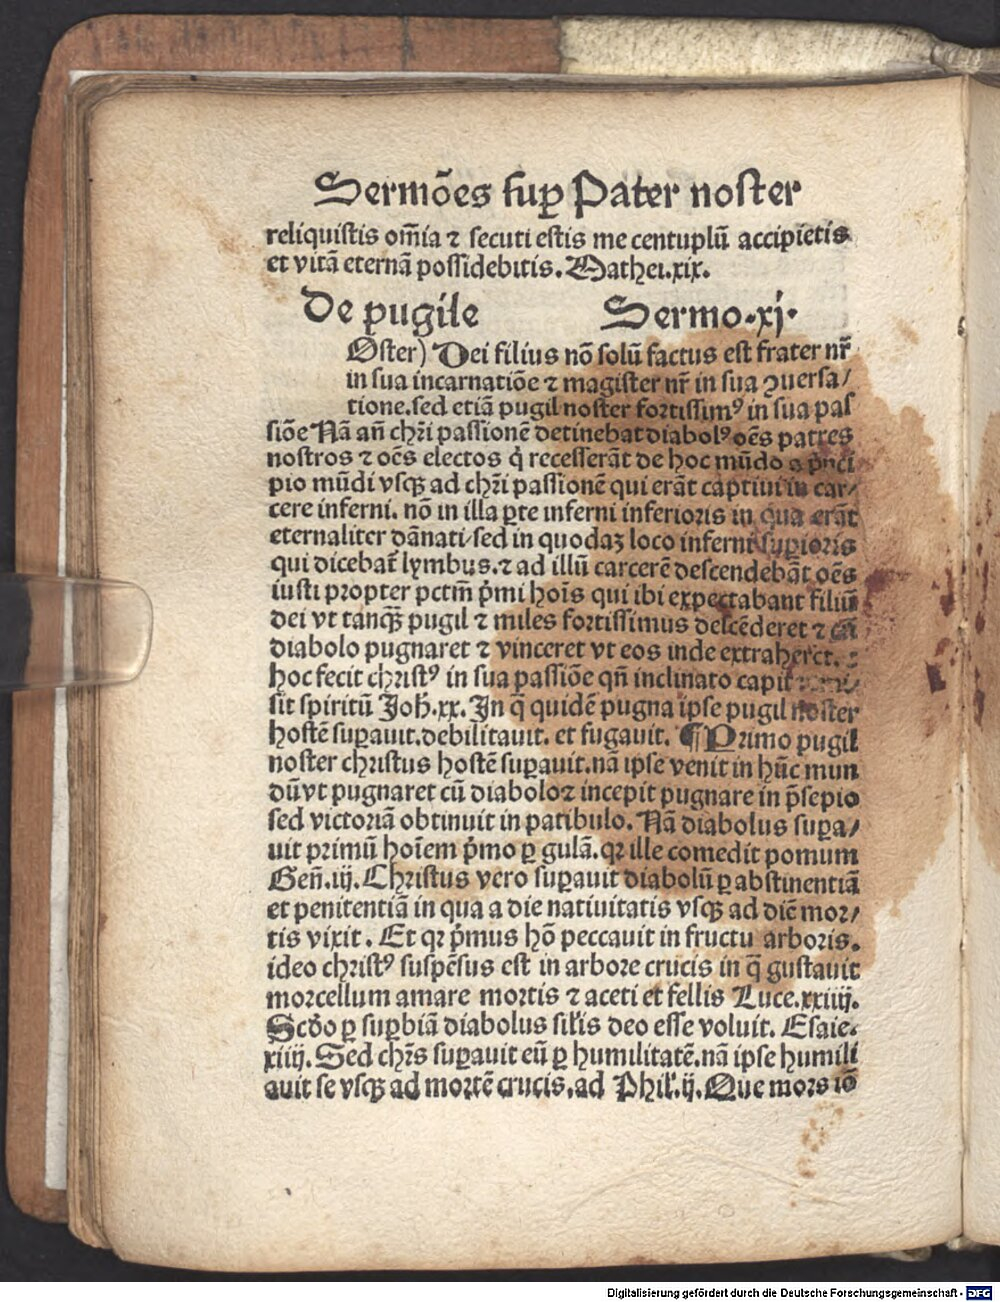 Sermões suꝑ Pater noster
reliquistis om̃ia ⁊ secuti estis me centuplũ accipietis
et vitã eternã possidebitis. Mathei.xix.
De pugile Sermo.xj.
Oster) Dei filius nõ solũ factus est frater nr̃
in sua incarnatiõe ⁊ magister nr̃ in sua ꝯuersa/
tione.sed etiã pugil noster fortissimꝰ in sua pas
siõe Nã añ chr̃i passionẽ detinebat diabolꝰ oẽs patres
nostros ⁊ oẽs electos q̇ recesserãt de hoc mũdo a pͥnci
pio mũdi vsqꝫ ad chr̃i passionẽ qui erãt captiui in car/
cere inferni. nõ in illa ꝑte inferni inferioris in qua erãt
eternaliter dãnati/sed in quodaꝫ loco inferni suꝑioris
qui dicebat̃ lymbus.⁊ ad illũ carcerẽ descendebãt oẽs
iusti propter pctm̃ pͥmi hoĩs qui ibi expectabant filiũ
dei vt tanqꝫ̃ pugil ⁊ miles fortissimus descẽderet ⁊ cũ
diabolo pugnaret ⁊ vinceret vt eos inde extraheret.
hoc fecit christꝰ in sua passiõe qñ inclinato capite emi/
sit spiritũ Joh̃.xx. In q̃ quidẽ pugna ipse pugil noster
hostẽ suꝑauit.debilitauit. et fugauit. ¶ Primo pugil
noster christus hostẽ suꝑauit.nã ipse venit in hũc mun
dũ vt pugnaret cũ diabolo⁊ incepit pugnare in p̃sepio
sed victoriã obtinuit in patibulo. Nã diabolus suꝑa/
uit primũ hoĩem pͥmo ꝑ gulã.qꝛ ille comedit pomum
Geñ.iij. Christus vero suꝑauit diabolũ ꝑ abstinentiã
et penitentiã in qua a die natiuitatis vsqꝫ ad diẽ mor/
tis vixit. Et qꝛ pͥmus hõ peccauit in fructu arboris.
ideo christꝰ suspẽsus est in arbore crucis in q̃ gustauit
morcellum amare mortis ⁊ aceti et fellis Luce.xxiiij.
Scd̃o ꝑ suꝑbiã diabolus sil̃is deo esse voluit. Esaie.
xiiij. Sed chr̃s suꝑauit eũ ꝑ humilitatẽ.nã ipse humili
auit se vsqꝫ ad mortẽ crucis.ad Phil̃.ij. Que mors iõ
Digitalisierung gefördert durch die Deutsche Forschungsgemeinschaft - DFG